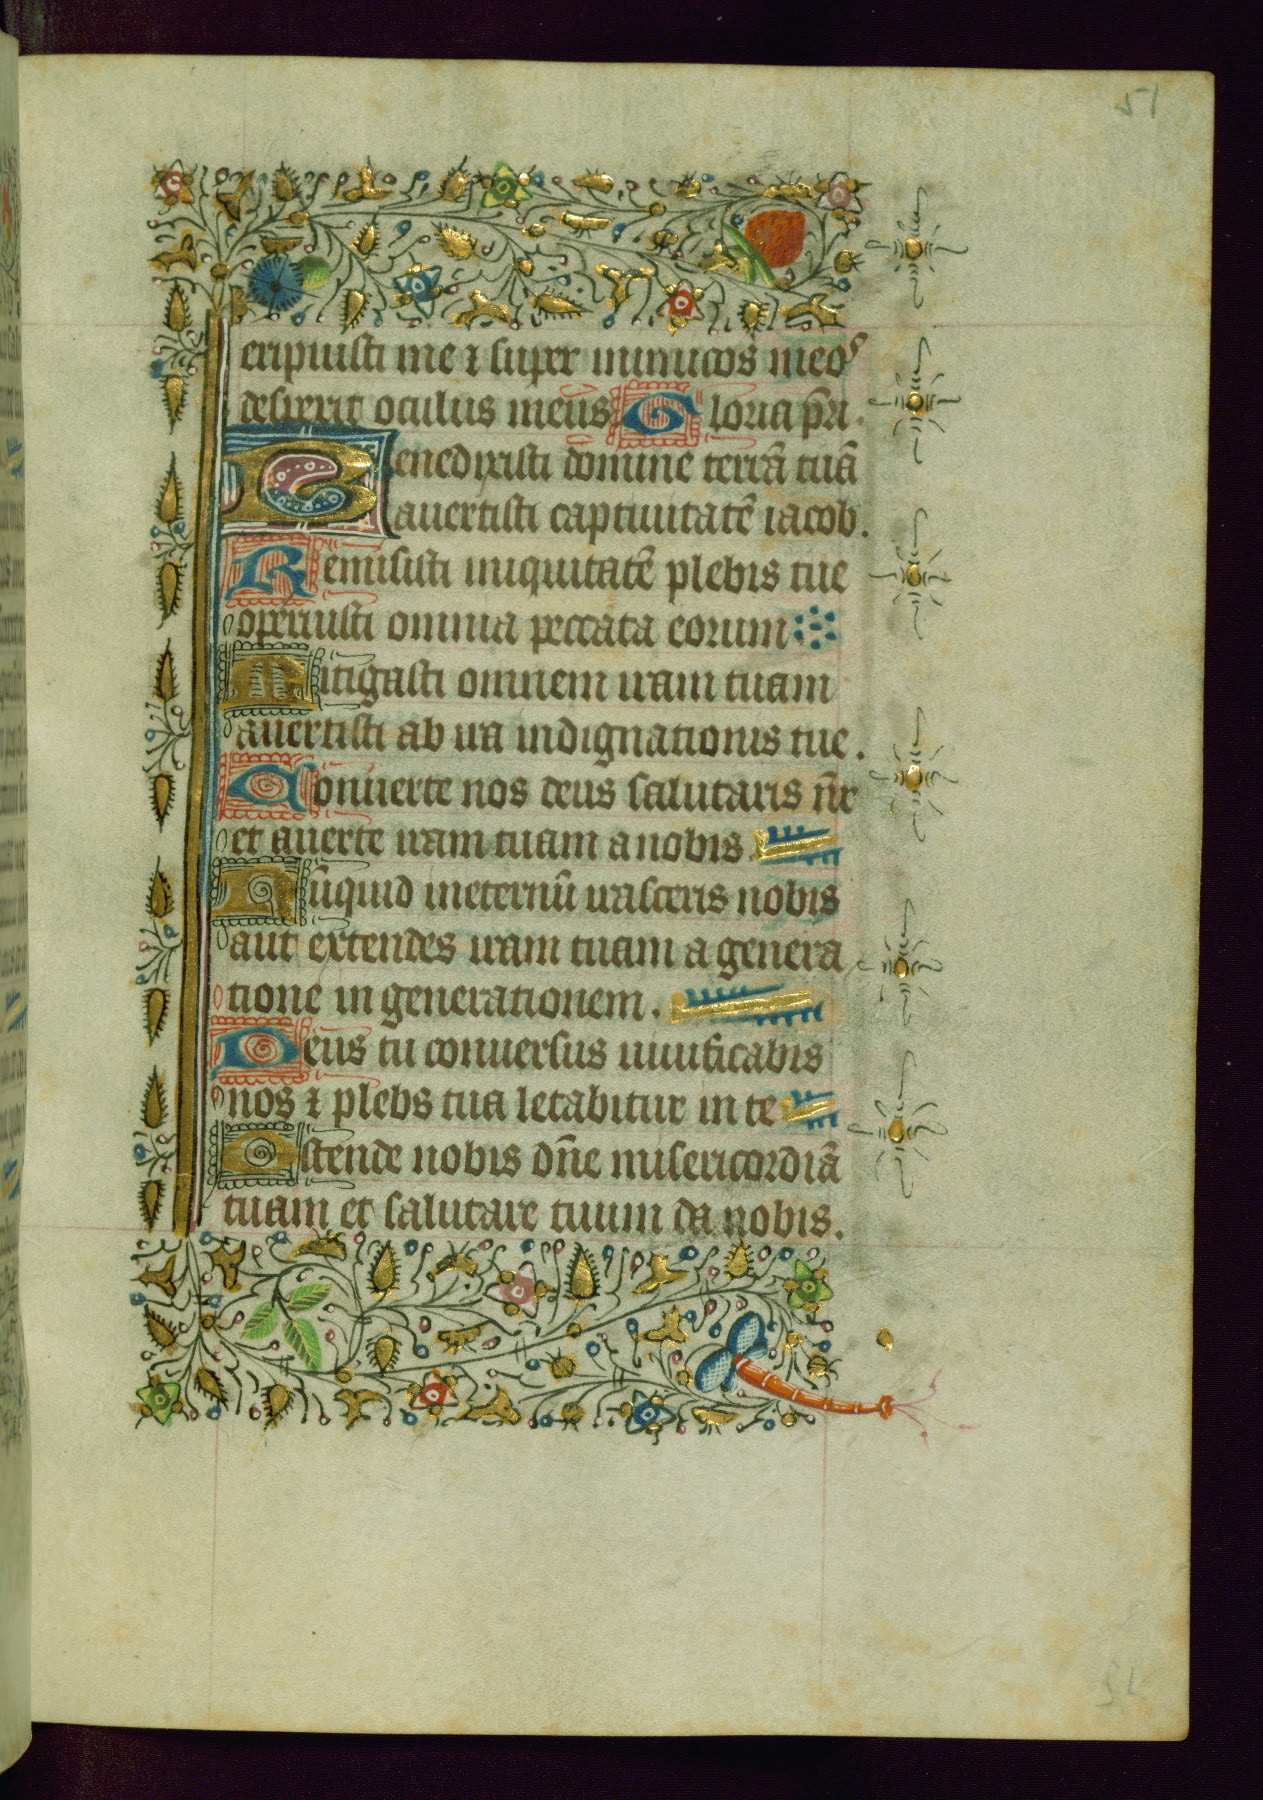 51
eripuisti me ⁊ super inimicos meos
despexit oculus meus Gloria pr̄i.
Benedixisti domine terrā tuā
auertisti captiuitatē iacob.
Remisisti iniquitatē plebis tue
operuisti omnia peccata eorum
Mitigasti omnem iram tuam
auertisti ab ira indignationis tue.
Conuerte nos deus salutaris nr̄
et auerte iram tuam a nobis.
Nūquid ineternū irasceris nobis
aut extendes iram tuam a genera
tione in generationem.
Deus tu conuersus uiuificabis
nos ⁊ plebs tua letabitur in te
Ostende nobis dn̄e misericordiā
tuam et salutare tuum da nobis.